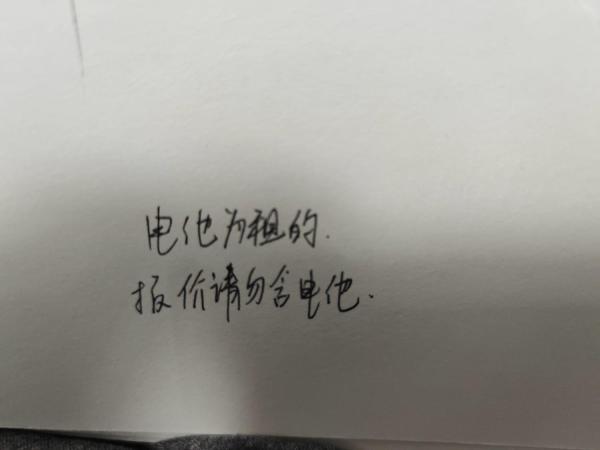 电池为租的.
报价请勿含电池.